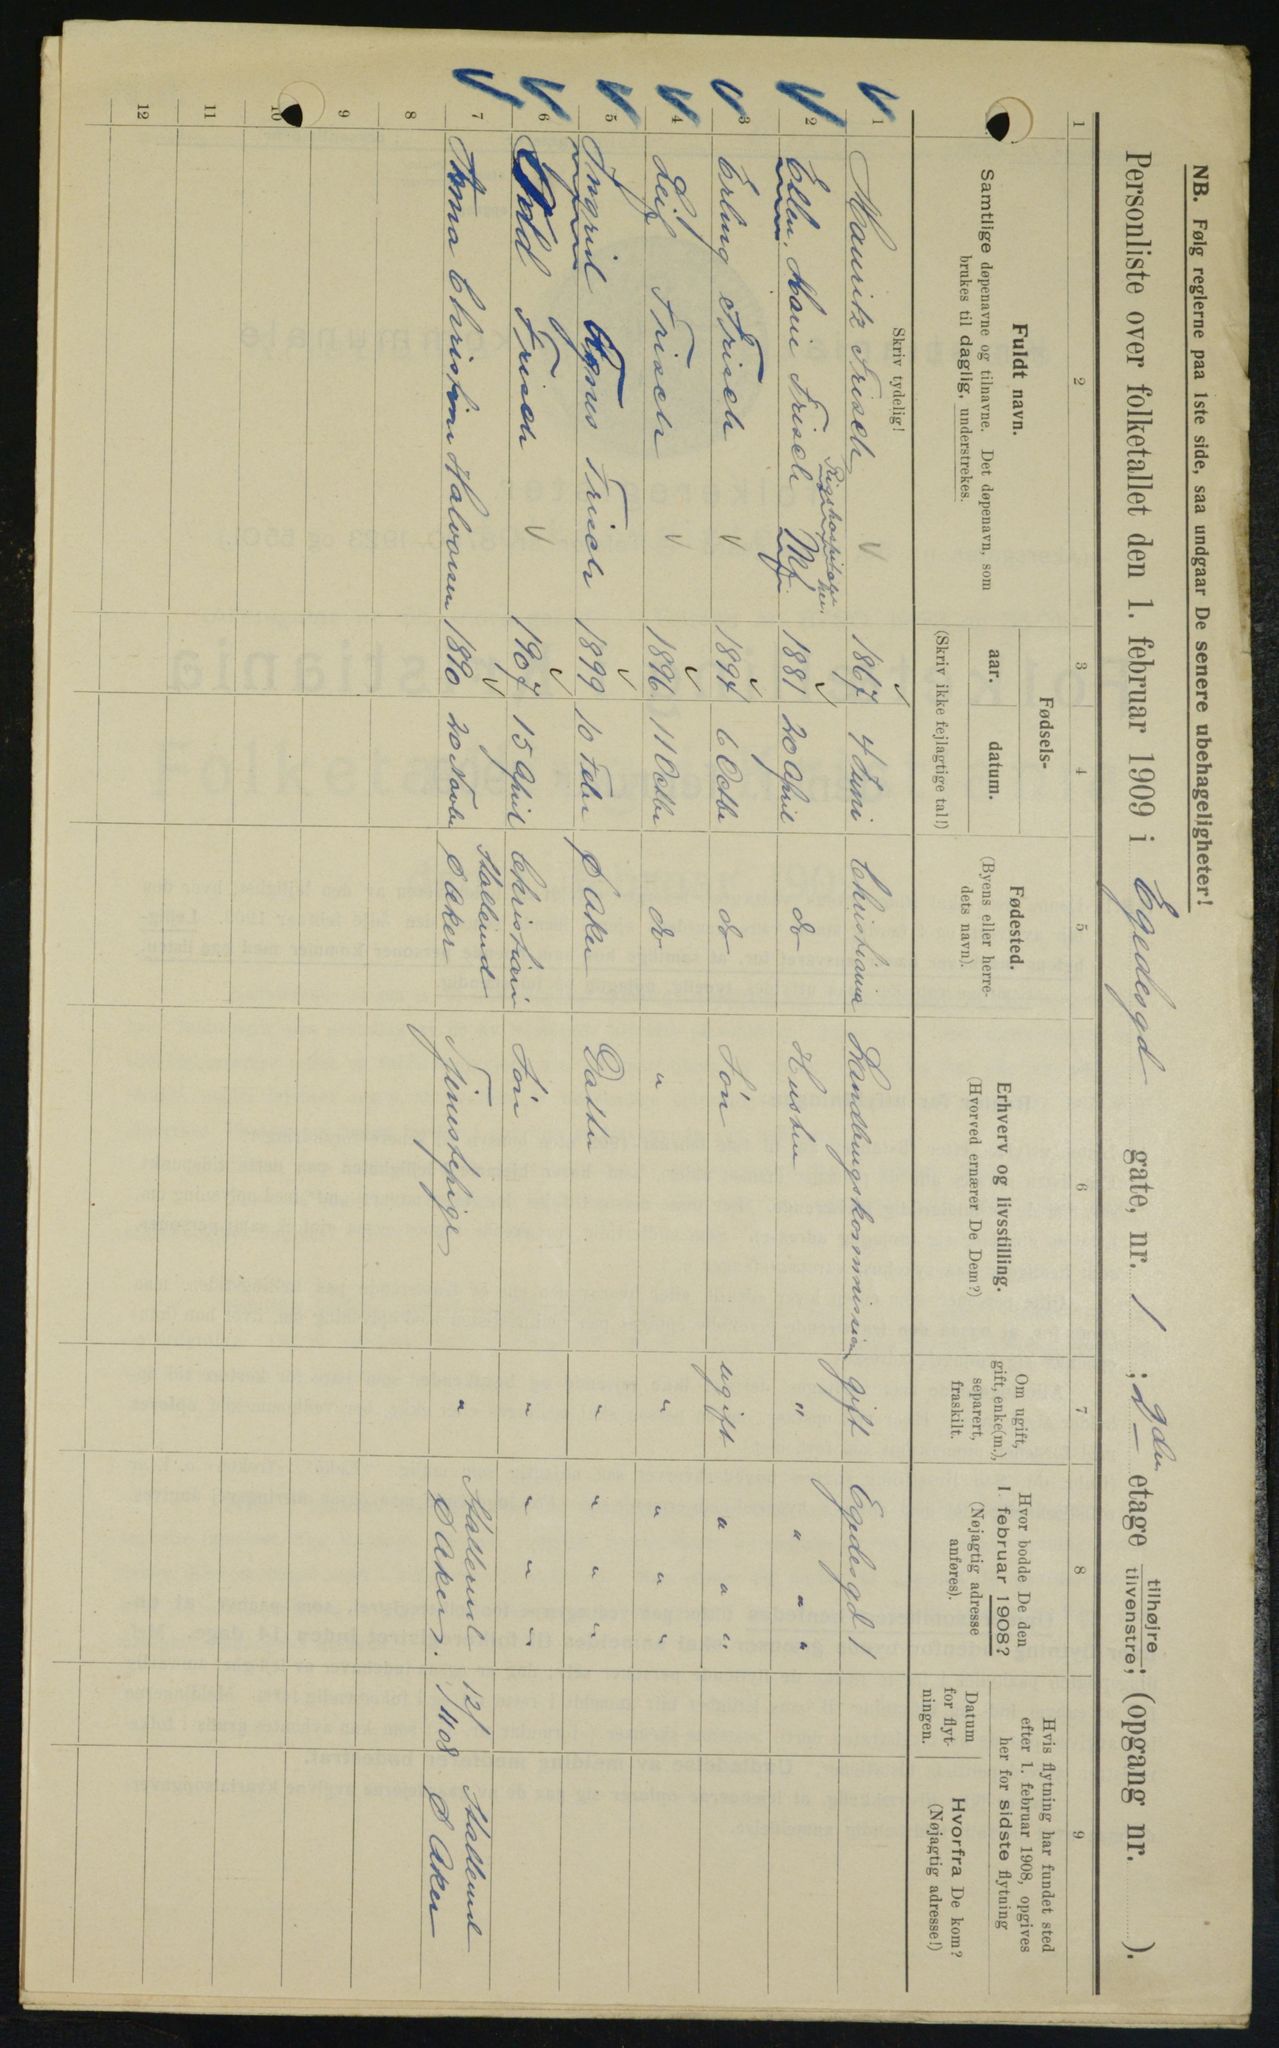 NB. Følg reglerne paa 1ste side, saa undgaar De senere ubehageligheter!
Personliste over folketallet den 1. februar 1909 i Egedesgd gate, nr. 1 ; 2den etage tilhøjre tilvenstre; (opgang nr. ).
1 2 3 4 5 6 7 8 9
Fuldt navn.
Samtlige døpenavne og tilnavne. Det døpenavn, som
brukes til daglig, understrekes.
Skriv tydelig!
Fødsels-
aar. datum.
(Skriv ikke fejlagtige tal!)
Fødested.
(Byens eller herre-
dets navn).
Erhverv og livsstilling.
(Hvorved ernærer De Dem?)
Om ugift,
gift, enke(m.),
separert,
fraskilt.
Hvor bodde De den
1 februar 1908?
(Nøjagtig adresse
anføres).
Hvis flytning har fundet sted
efter 1. februar 1908, opgives
her for sidste flytning
Datum
for flyt-
ningen.
Hvorfra De kom?
(Nøjagtig adresse!)
1 Mauritz Frisch 1867 4 Juni Christiania Handlingskommission gift Egedesgd 1
Rigshospitalet
2 Ellen Marie Frisch Mf 1881 20 April do Hustru " " " "
3 Erling Frisch 1894 6 Octbr do Sön ugift " " "
4 Leif Frisch 1896 11 Octbr do " " " " "
5 Ingrid Frisch 1899 10 Febr Ø Aker Datter " " " "
6 Odd Frisch 1907 15 April Christiania Sön " " " "
7 Anna Christine Halvorsen 1890 20 Novbr Ø Aker Tjenestepige " Ø Aker. 12/11 08 Ø Aker
8
9
10
11
12